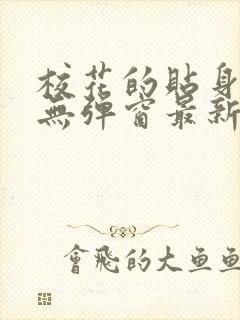 校花的贴身
無彈窗最新
會飛的大魚魚